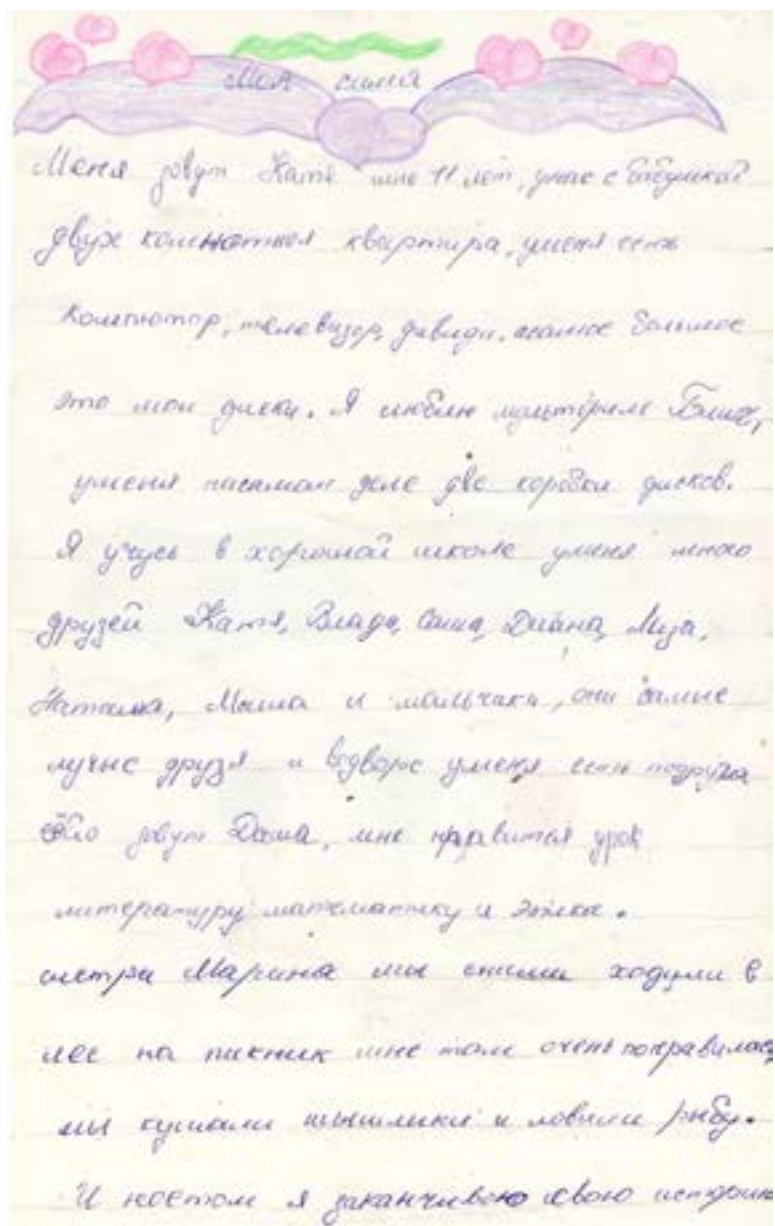 Моя симя
Меня зовут Катя мне 11 лет, унас с бабушкой
двух комнотноя квартира, уменя есть
компютор, телевизор, дивиди, осамое большое
это мои диски. Я люблю мультфильм Блич,
уменя насамом деле две коробки дисков.
Я учусь в хорошой школе уменя много
друзей Катя, Влада, Саша, Диана, Лиза,
Наташа, Мыша и мальчики, они самые
лучие друзя и водворе уменя есть подруга
зовут Даша, мне нравится урок
литературу математику и
систра Марина мы сними ходили в
лес на пикник мне там очень понравилась
мы кушали шышлики и ловили рыбу.
И ностом я заканчиваю свою историю